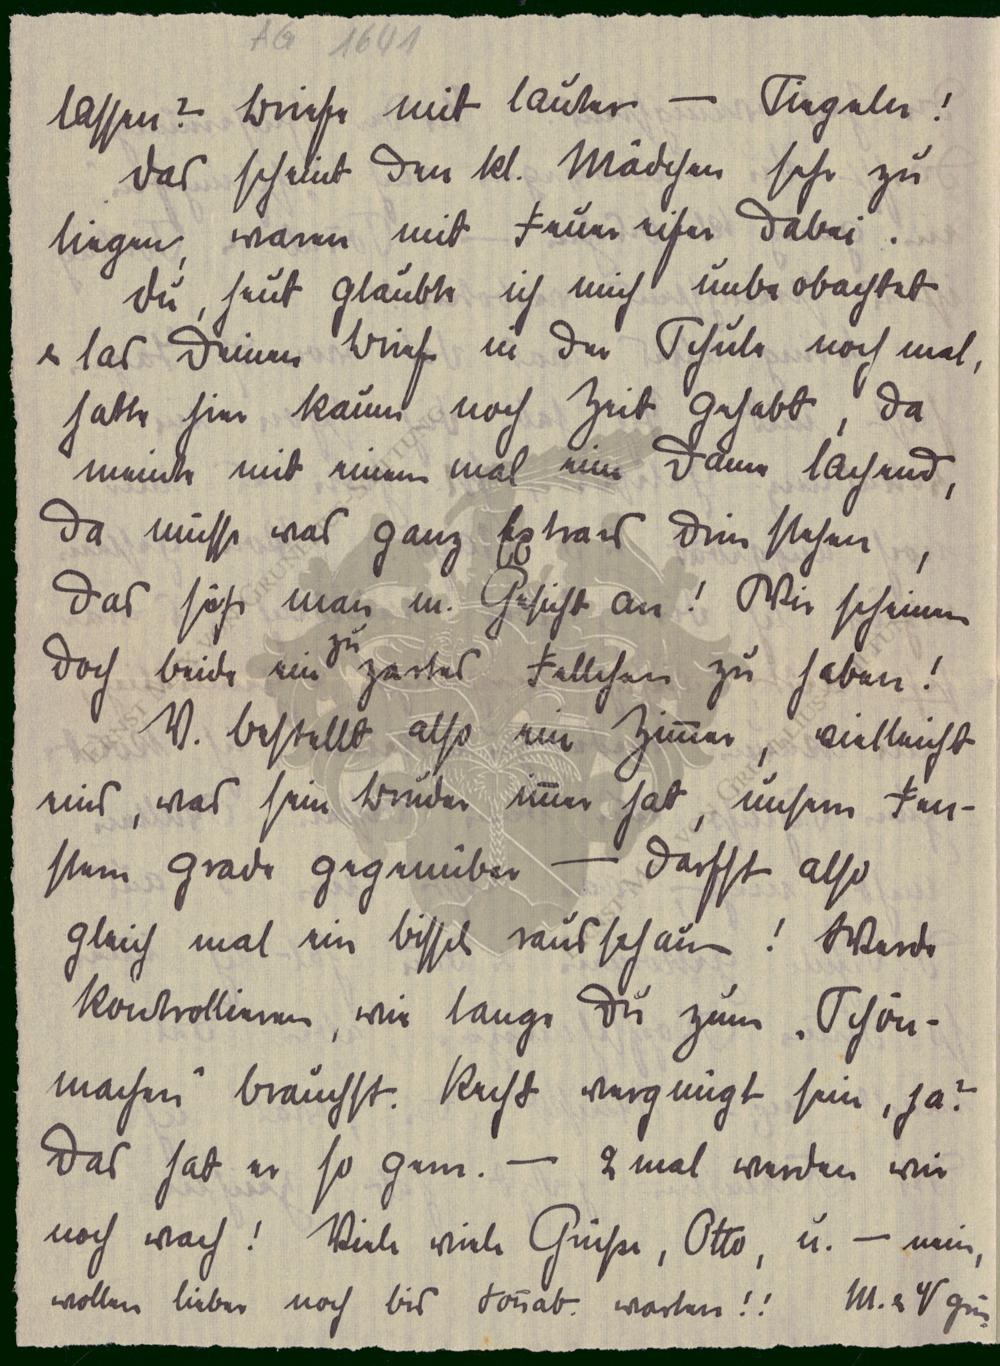 AG 1641
lassen? Briefe mit lauter — Siegeln!
Das scheint den kl. Mädchen sehr zu
liegen, waren mit Feuereifer dabei.
Du, heut glaubte ich mich unbeobachtet
& las Deinen Brief in der Schule noch mal,
hatte hier kaum noch Zeit gehabt, da
meinte mit einem mal eine Dame lachend,
da müsse was ganz Extraes drin stehen,
das säh man m. Gesicht an! Wir scheinen
doch beide ein zu zartes Fellchen zu haben!
V. bestellt also ein Zim̅er, vielleicht
eins, was sein Bruder im̅er hat, unsern Fen-
stern grade gegenüber — darfst also
gleich mal ein bissel rausschaun! Werde
kontrollieren, wie lange Du zum „Schön-
machen" brauchst. Recht vergnügt sein, ja?
Das hat er so gern. — 2 mal werden wir
noch wach! Viele viele Grüße, Otto, u. — nein,
wollen lieber noch bis Son̅ab. warten!! M. & V